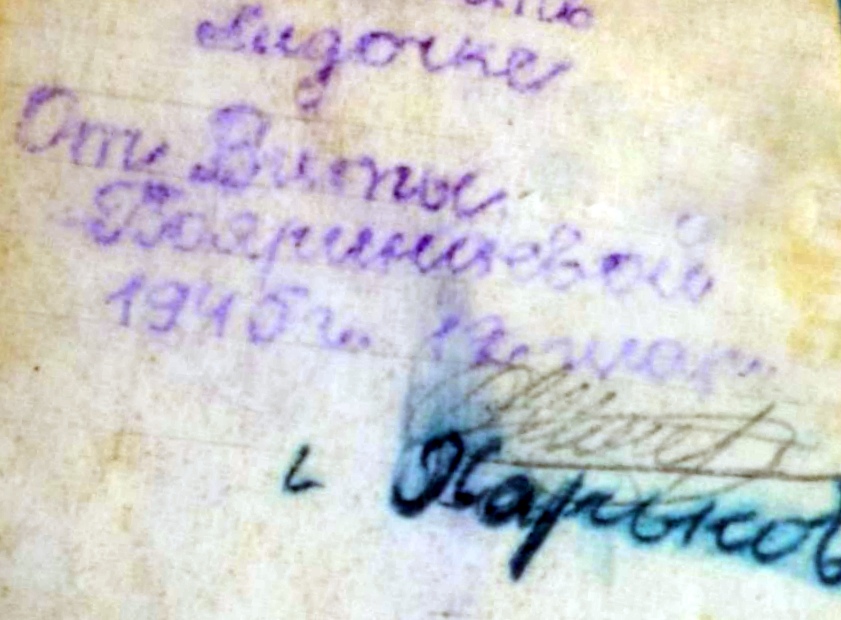 Лидочке
От Виты
Бояринцевой
1945 г. 12 мар
г. Харьков